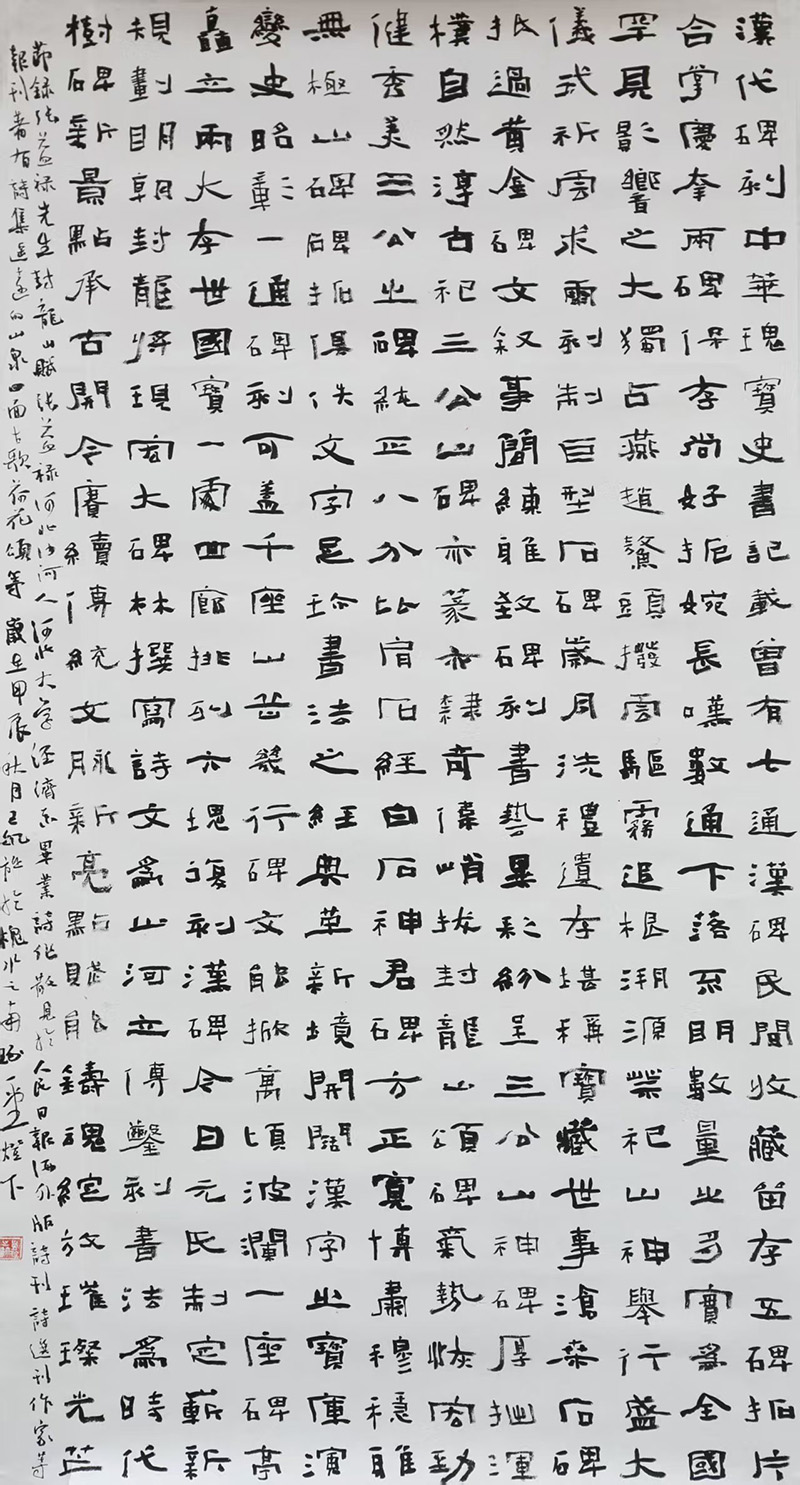 漢代碑刻中華瑰寶史書記載曾有七通漢碑民間收藏留存五碑拓片
合掌慶奎兩碑保存尚好扼婉長嘆數通下落不明數量之多實為全國
罕見影響之大獨占燕趙鰲頭撥雲驅霧追根溯源祟祀山神舉行盛大
儀式祈雲求雨刻制巨型石碑歲月洗禮遺存堪稱寶藏世事滄桑石碑
抵過黄金碑文叙事簡練雅致碑刻書藝異彩紛呈三公山神碑厚拙渾
樸自然淳古祀三公山碑亦篆亦隸奇偉峭拔封龍山頌碑氣勢恢宏勁
健秀美三公之碑純正八分比肩石經白石神君碑方正寬博肅穆穩雅
無極山碑碑石拓俱佚文字足珍書法之經典革新境開闢漢字之寶庫演
變史昭彰一通碑刻可蓋千座山岳幾行碑文能掀萬頃波瀾一座碑亭
矗立兩大存世國寶一處四廊排列六塊復刻漢碑今日元氏制定嶄新
規劃明朝封龍將現宏大碑林撰寫詩文為山河立傳鑿刻書法為時代
樹碑新景點承古開今賡續傳統文脉新亮點賦能鑄魂綻放璀璨光芒
節録張益禄先生封龍山賦張益禄河北沙河人河北大學經濟系畢業詩作散見於人民日報海外版詩刊詩選刊作家等
報刊著有詩集遥遠的山泉四面古歌荷花頌等歲在甲辰秋月王 於槐水之南 堂燈下